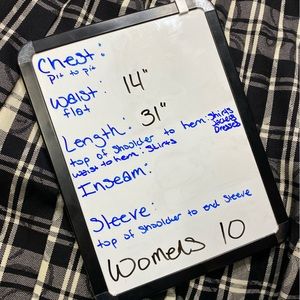 Chest:
pit to pit
Waist: 14"
flat
Length: 31"
top of shoulder to hem: Shirts
Dresses
waist to hem: Skirts
Inseam:
Sleeve:
top of shoulder to end sleeve
Womens 10